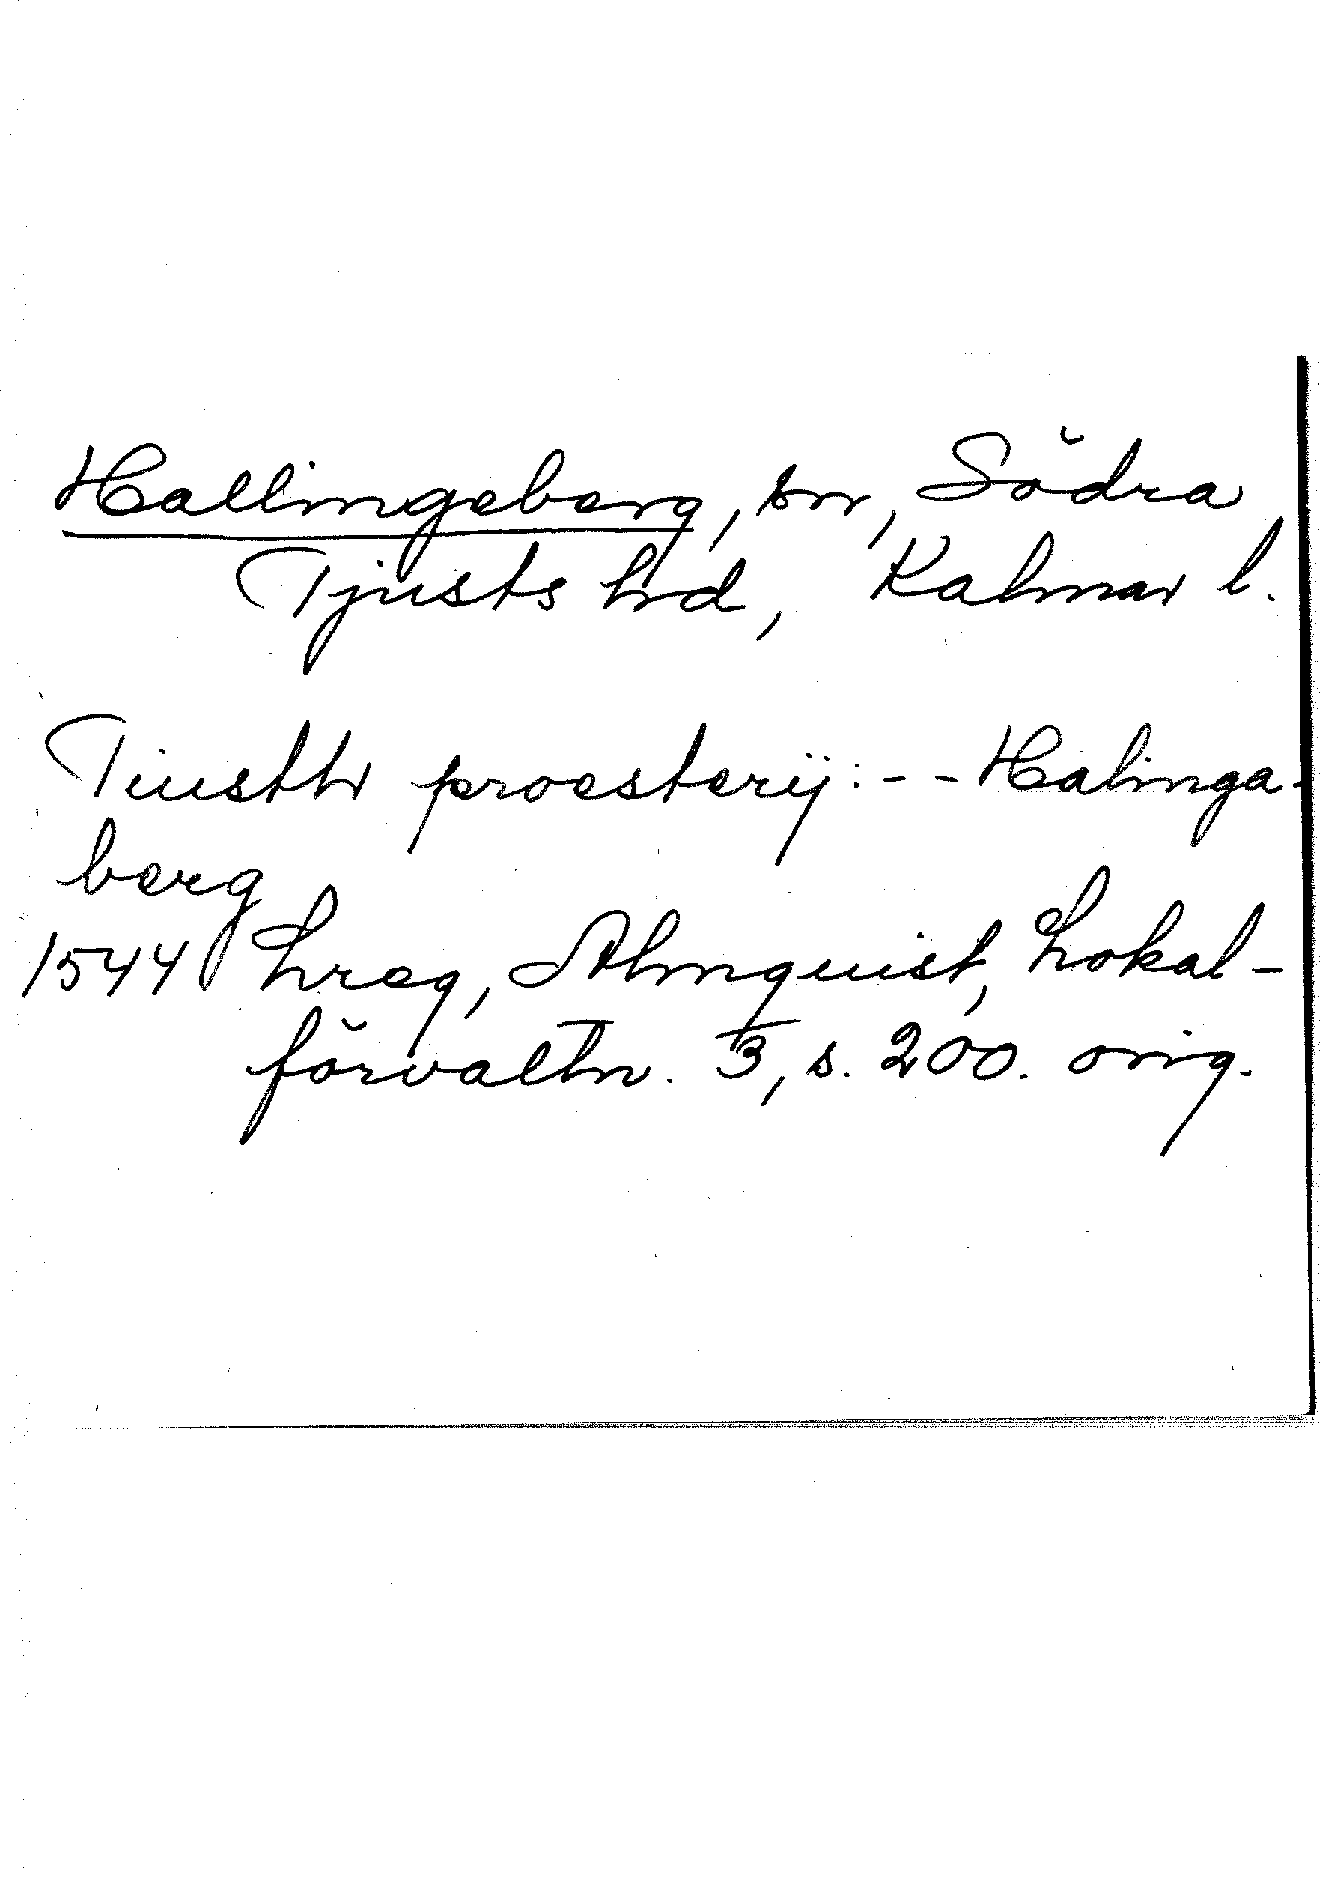 Hallingeberg, sn, Södra
Tjusts hd, Kalmar l.
Tiusth proesterij: - - Halinga-
berg
1544 Lreg, Almquist, Lokal-
förvaltn. 3, s. 200. orig.